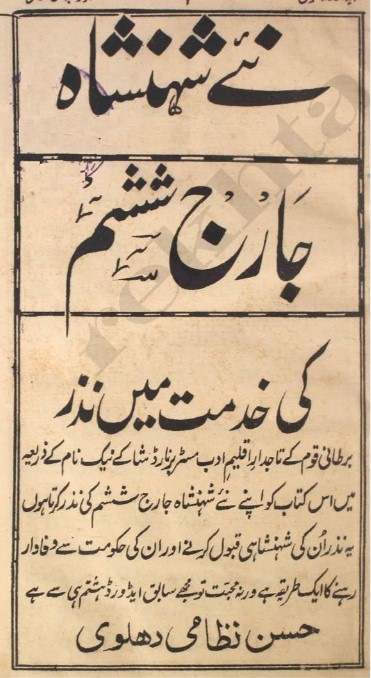 نئے شہنشاہ
جارج ششم
کی خدمت میں نذر
برطانی قوم کے تاجدارِ اقلیمِ ادب مسٹر برنارڈ شا کے نیک نام کے ذریعہ
میں اس کتاب کو اپنے نئے شہنشاہ جارج ششم کی نذر کرتا ہوں
یہ نذر اُن کی شہنشاہی قبول کرنے اور ان کی حکومت سے وفادار
رہنے کا ایک طریقہ ہے ورنہ محبت تو مجھے سابق ایڈورڈ ہشتم ہی سے ہے
حسن نظامی دھلوی
rekhta